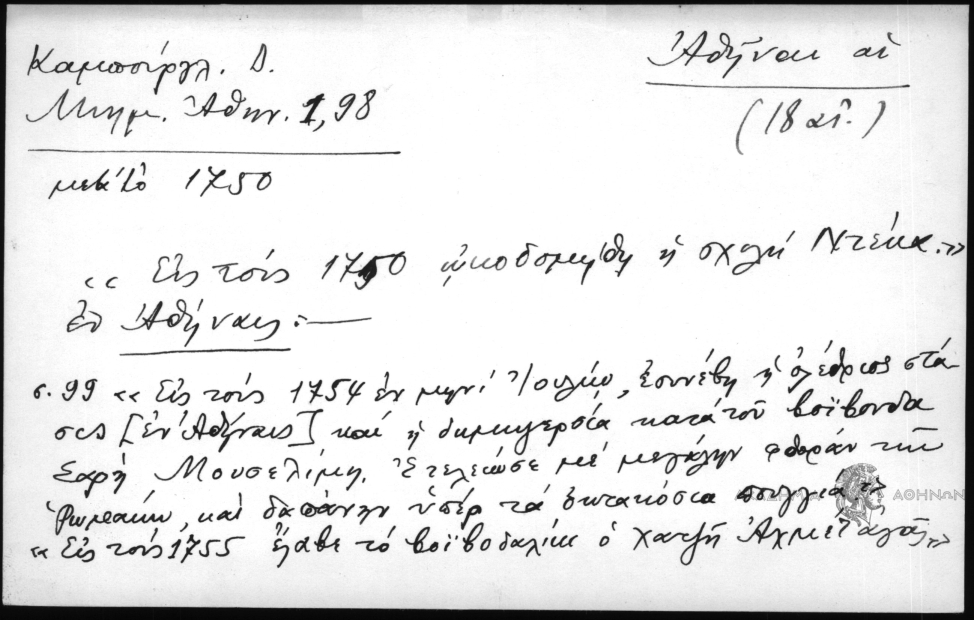 Καμπούρογλ. Δ.
Μνημ. Ἀθην. 1, 98
Ἀθῆναι αἱ
(18 αἰ.)
μετὰ τὸ 1750
«Εἰς τοὺς 1750 ᾠκοδομήθη ἡ σχολὴ Ντέκα.»
ἐν Ἀθήναις:—
σ. 99 «Εἰς τοὺς 1754 ἐν μηνὶ Ἰουλίῳ, ἐσυνέβη ἡ ὀλέθριος στά-
σις [ἐν Ἀθήναις] καὶ ἡ δημεγερσία κατὰ τοῦ βοϊβονδα
Σαρῆ Μουσελίμη. Ἐτελείωσε μὲ μεγάλην φθορὰν τῶν
Ῥωμαίων, καὶ δαπάνην ὑπὲρ τὰ ὀκτακόσια πουγγιά»
«Εἰς τοὺς 1755 ἔλαβε τὸ βοϊβοδαλίκι ὁ Χατζῆ Ἀχμὲτ ἀγᾶς»
ΑΘΗΝΩΝ